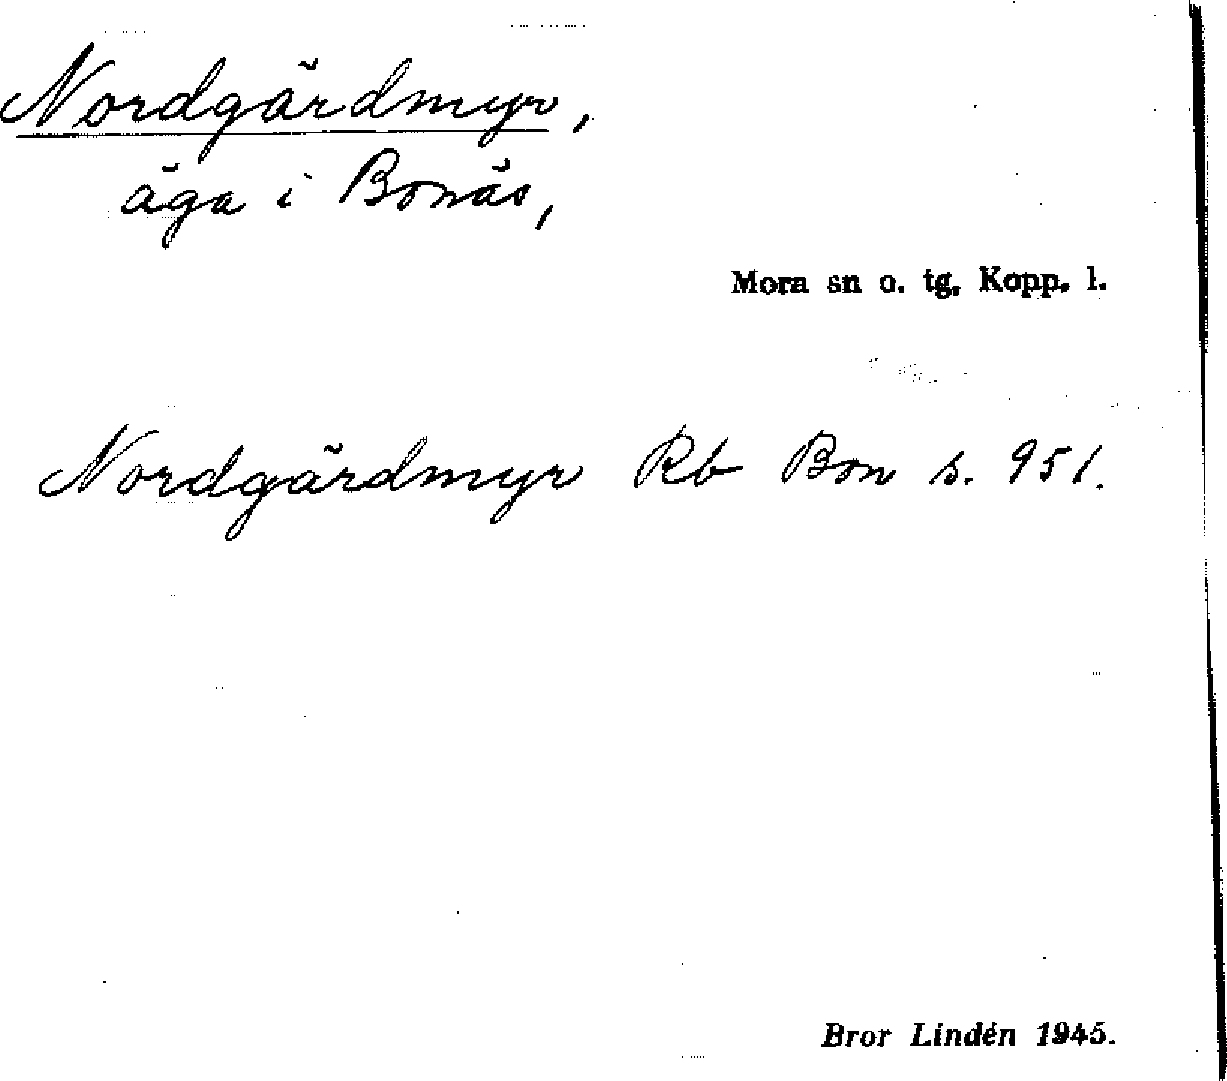 Nordgärdmyr,
äga i Bonäs,
Mora sn o. tg. Kopp. l.
Nordgärdmyr Rb Bon s. 951.
Bror Lindén 1945.